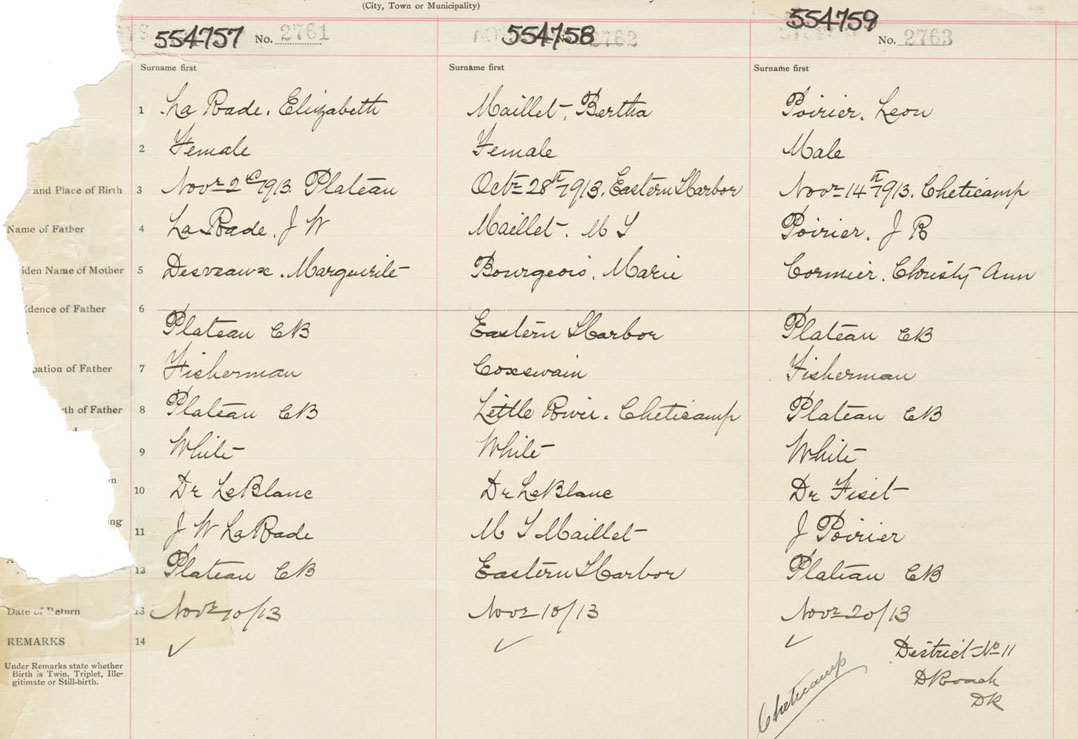 (City, Town or Municipality)
554757 No. 2761
554758 2762
554759 No. 2763
Surname first Surname first Surname first
1 La Rade. Elizabeth Maillet, Bertha Poirier. Leon
2 Female Female Male
and Place of Birth 3 Novr 2d 1913 Plateau Octr 28th 1913. Eastern Harbor Novr 14th 1913. Cheticamp
Name of Father 4 La Rade. J W Maillet. M Poirier. J B
iden Name of Mother 5 Desveaux. Marguerite Bourgeois. Marie Cormier. Christy Ann
dence of Father 6 Plateau CB Eastern Harbor Plateau CB
pation of Father 7 Fisherman Coxswain Fisherman
rth of Father 8 Plateau CB Little River. Cheticamp Plateau CB
9 White White White
10 Dr LeBlanc Dr LeBlanc Dr Fiset
ing 11 J W LaRade M Maillet J Poirier
12 Plateau CB Eastern Harbor Plateau CB
Date of Return 13 Novr 10/13 Novr 10/13 Novr 20/13
REMARKS 14 ✓ ✓ ✓
Under Remarks state whether
Birth is Twin, Triplet, Ille-
gitimate or Still-birth.
District No 11
DRoach
DR
Cheticamp